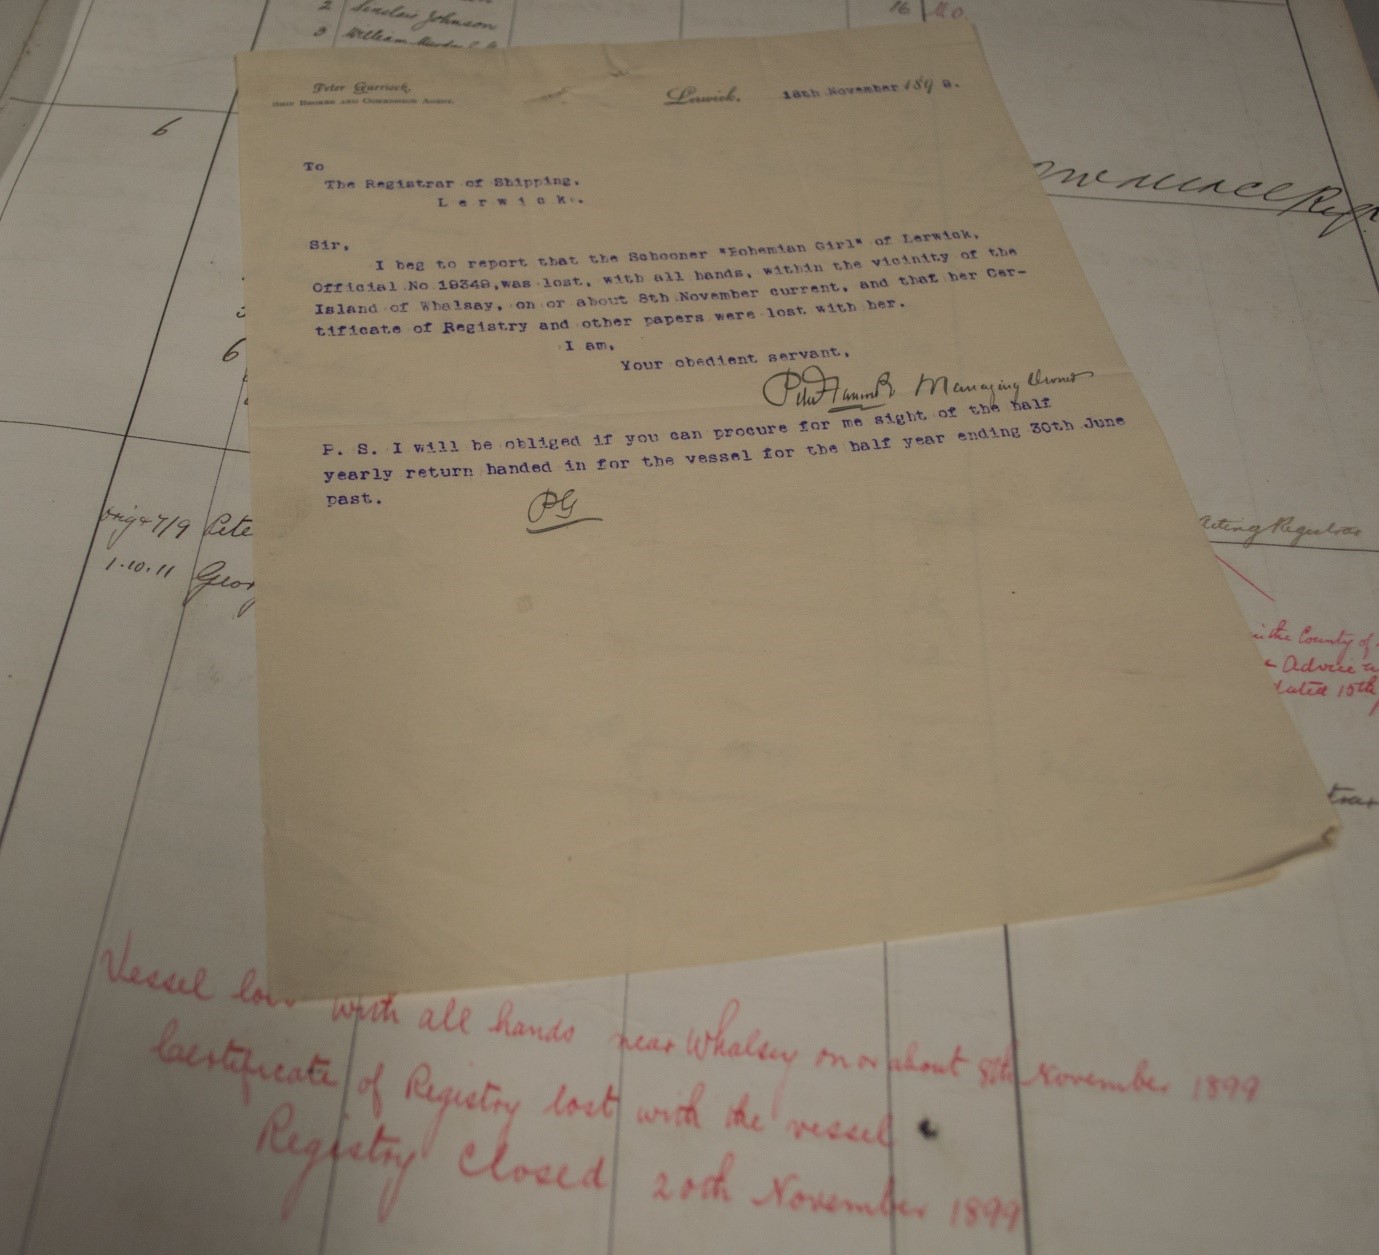 2 Sinclair Johnson
3 William
16
6
Peter Garriock,
SHIP BROKER AND COMMISSION AGENT.
Lerwick, 18th November 1899.
To
The Registrar of Shipping,
Lerwick.
Sir,
I beg to report that the Schooner "Bohemian Girl" of Lerwick,
Official No 19349, was lost, with all hands, within the vicinity of the
Island of Whalsay, on or about 8th November current, and that her Cer-
tificate of Registry and other papers were lost with her.
I am,
Your obedient servant,
Peter Garriock Managing Owner
P. S. I will be obliged if you can procure for me sight of the half
yearly return handed in for the vessel for the half year ending 30th June
past.
PG
6
Pete
1.10.11 Geor
Acting Registrar
in the County of
Advice
dated 15th
trar
Vessel lost with all hands near Whalsey on or about 8th November 1899
Certificate of Registry lost with the vessel
Registry Closed 20th November 1899